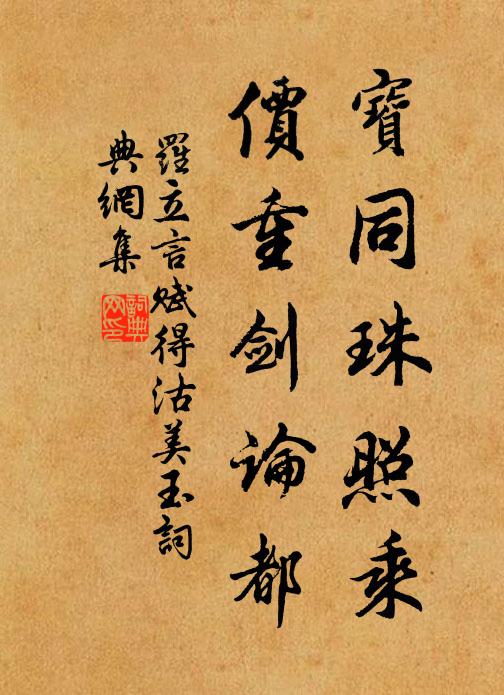 寶同珠照乘
價重劍論都
羅立言賦得沽美玉詞
典網集
詞典網印